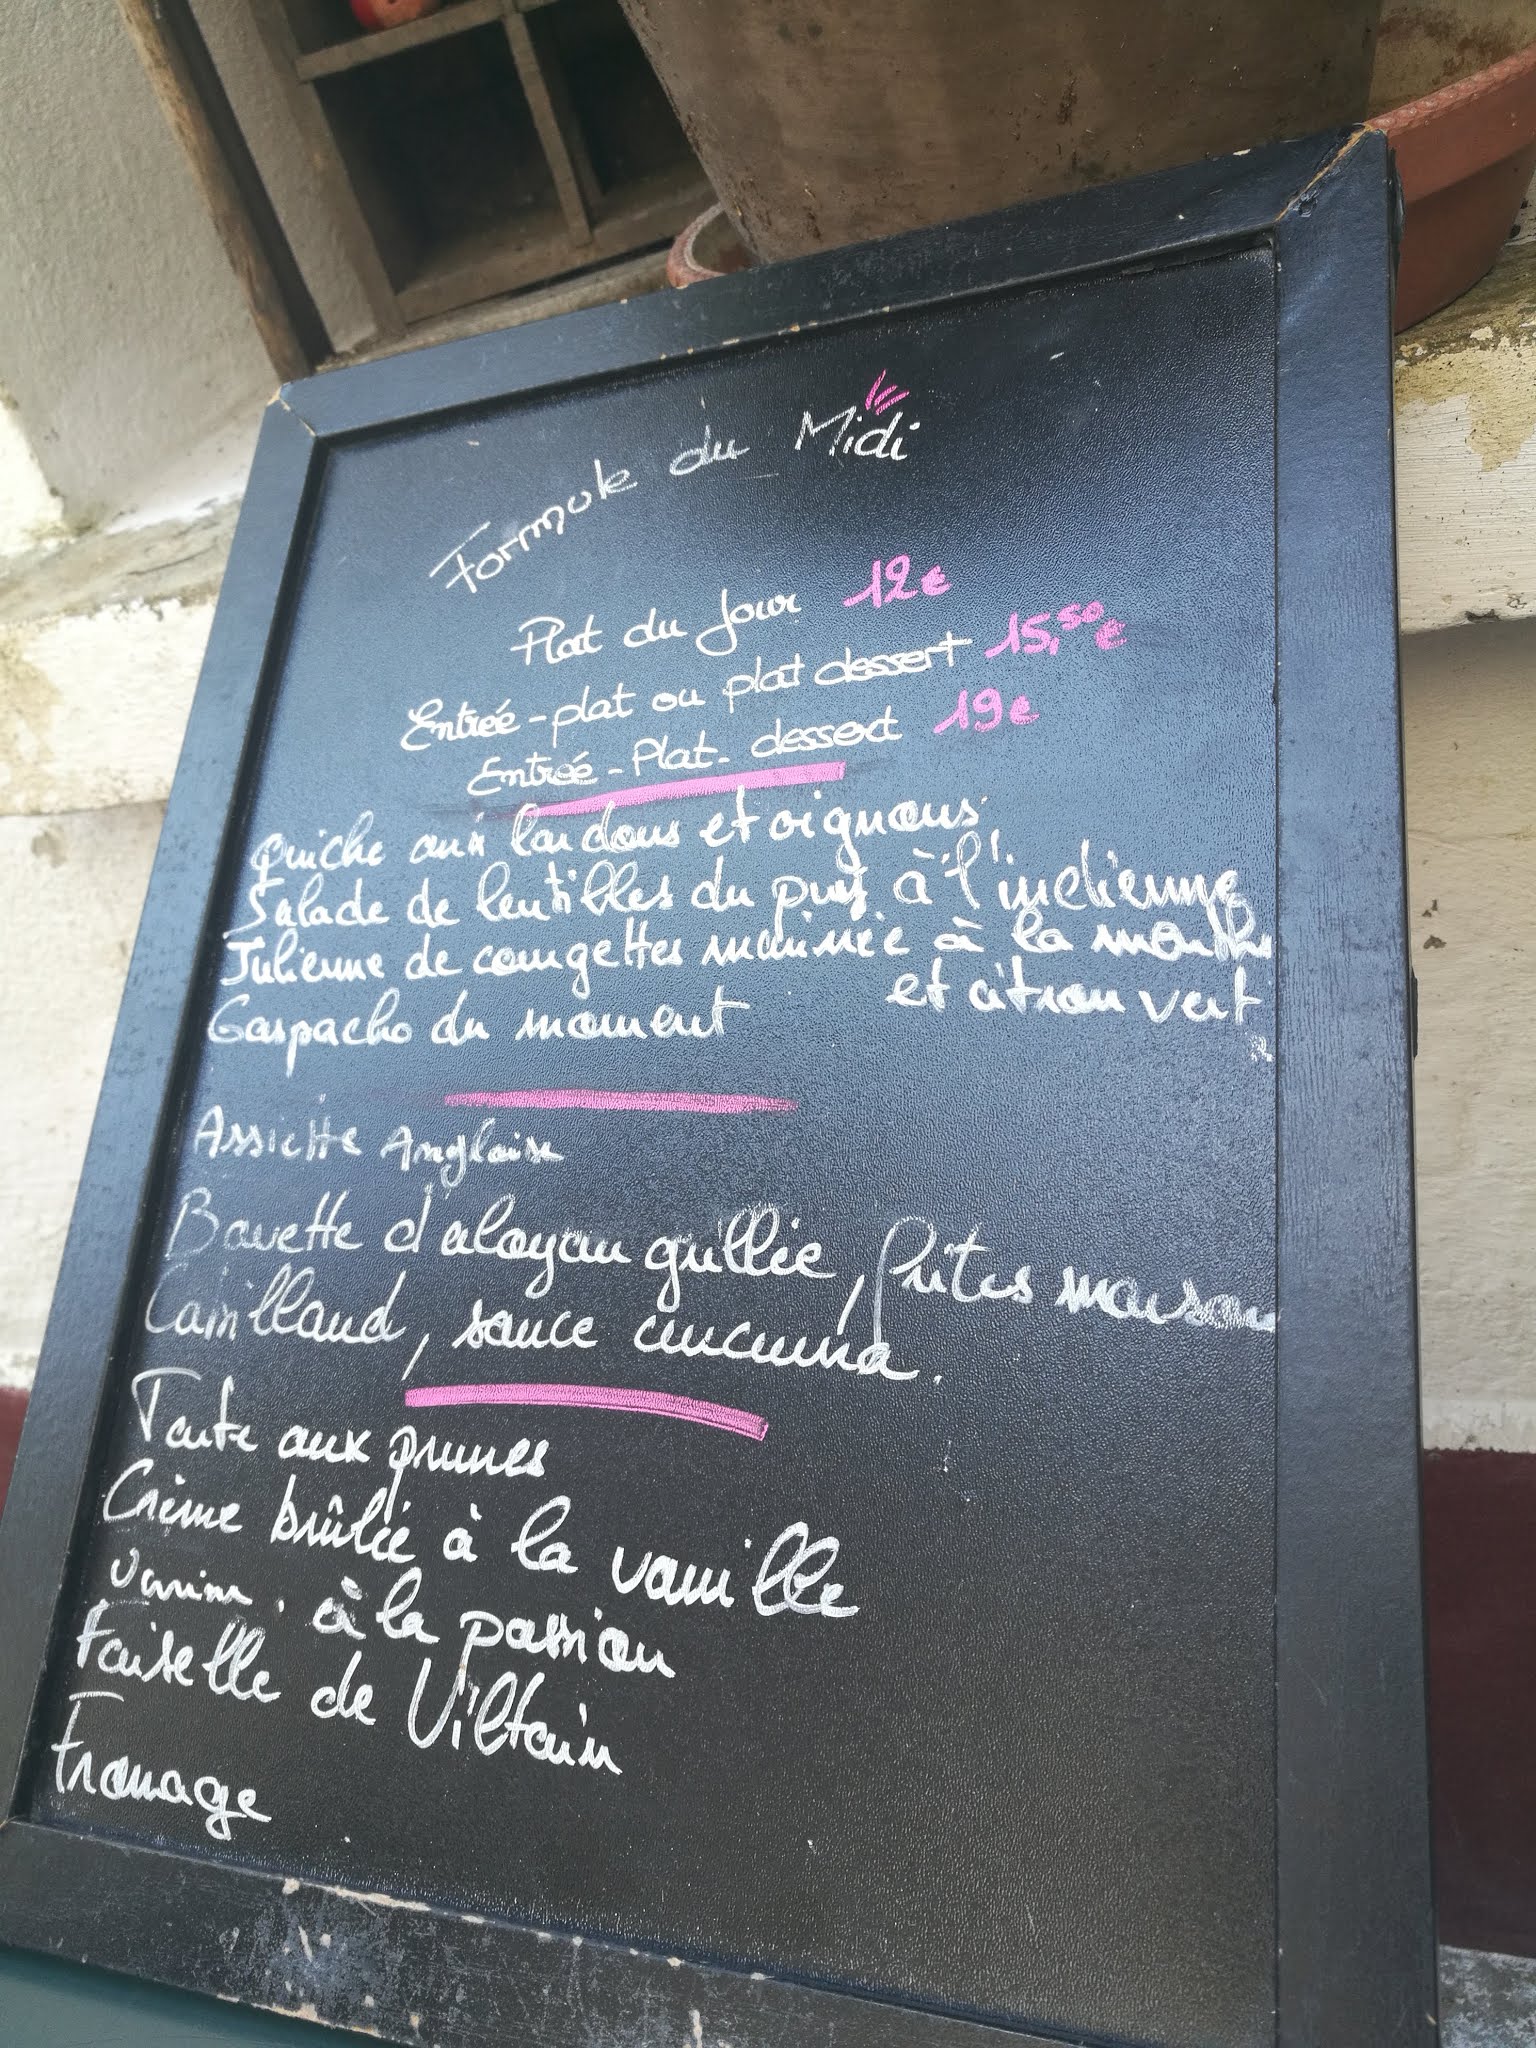 Formule du Midi
Plat du Jour 12€
Entrée-plat ou plat dessert 15,50€
Entrée-Plat-dessert 19€
Quiche aux lardons et oignons
Salade de lentilles du puy à l'indienne
Julienne de courgettes marinée à la menthe
et citron vert
Gaspacho du moment
Assiette Anglaise
Bavette d'aloyau grillée, frites maison
Cabillaud, sauce
Tarte aux prunes
Crème brûlée à la vanille
à la passion
Faisselle de Viltain
Fromage